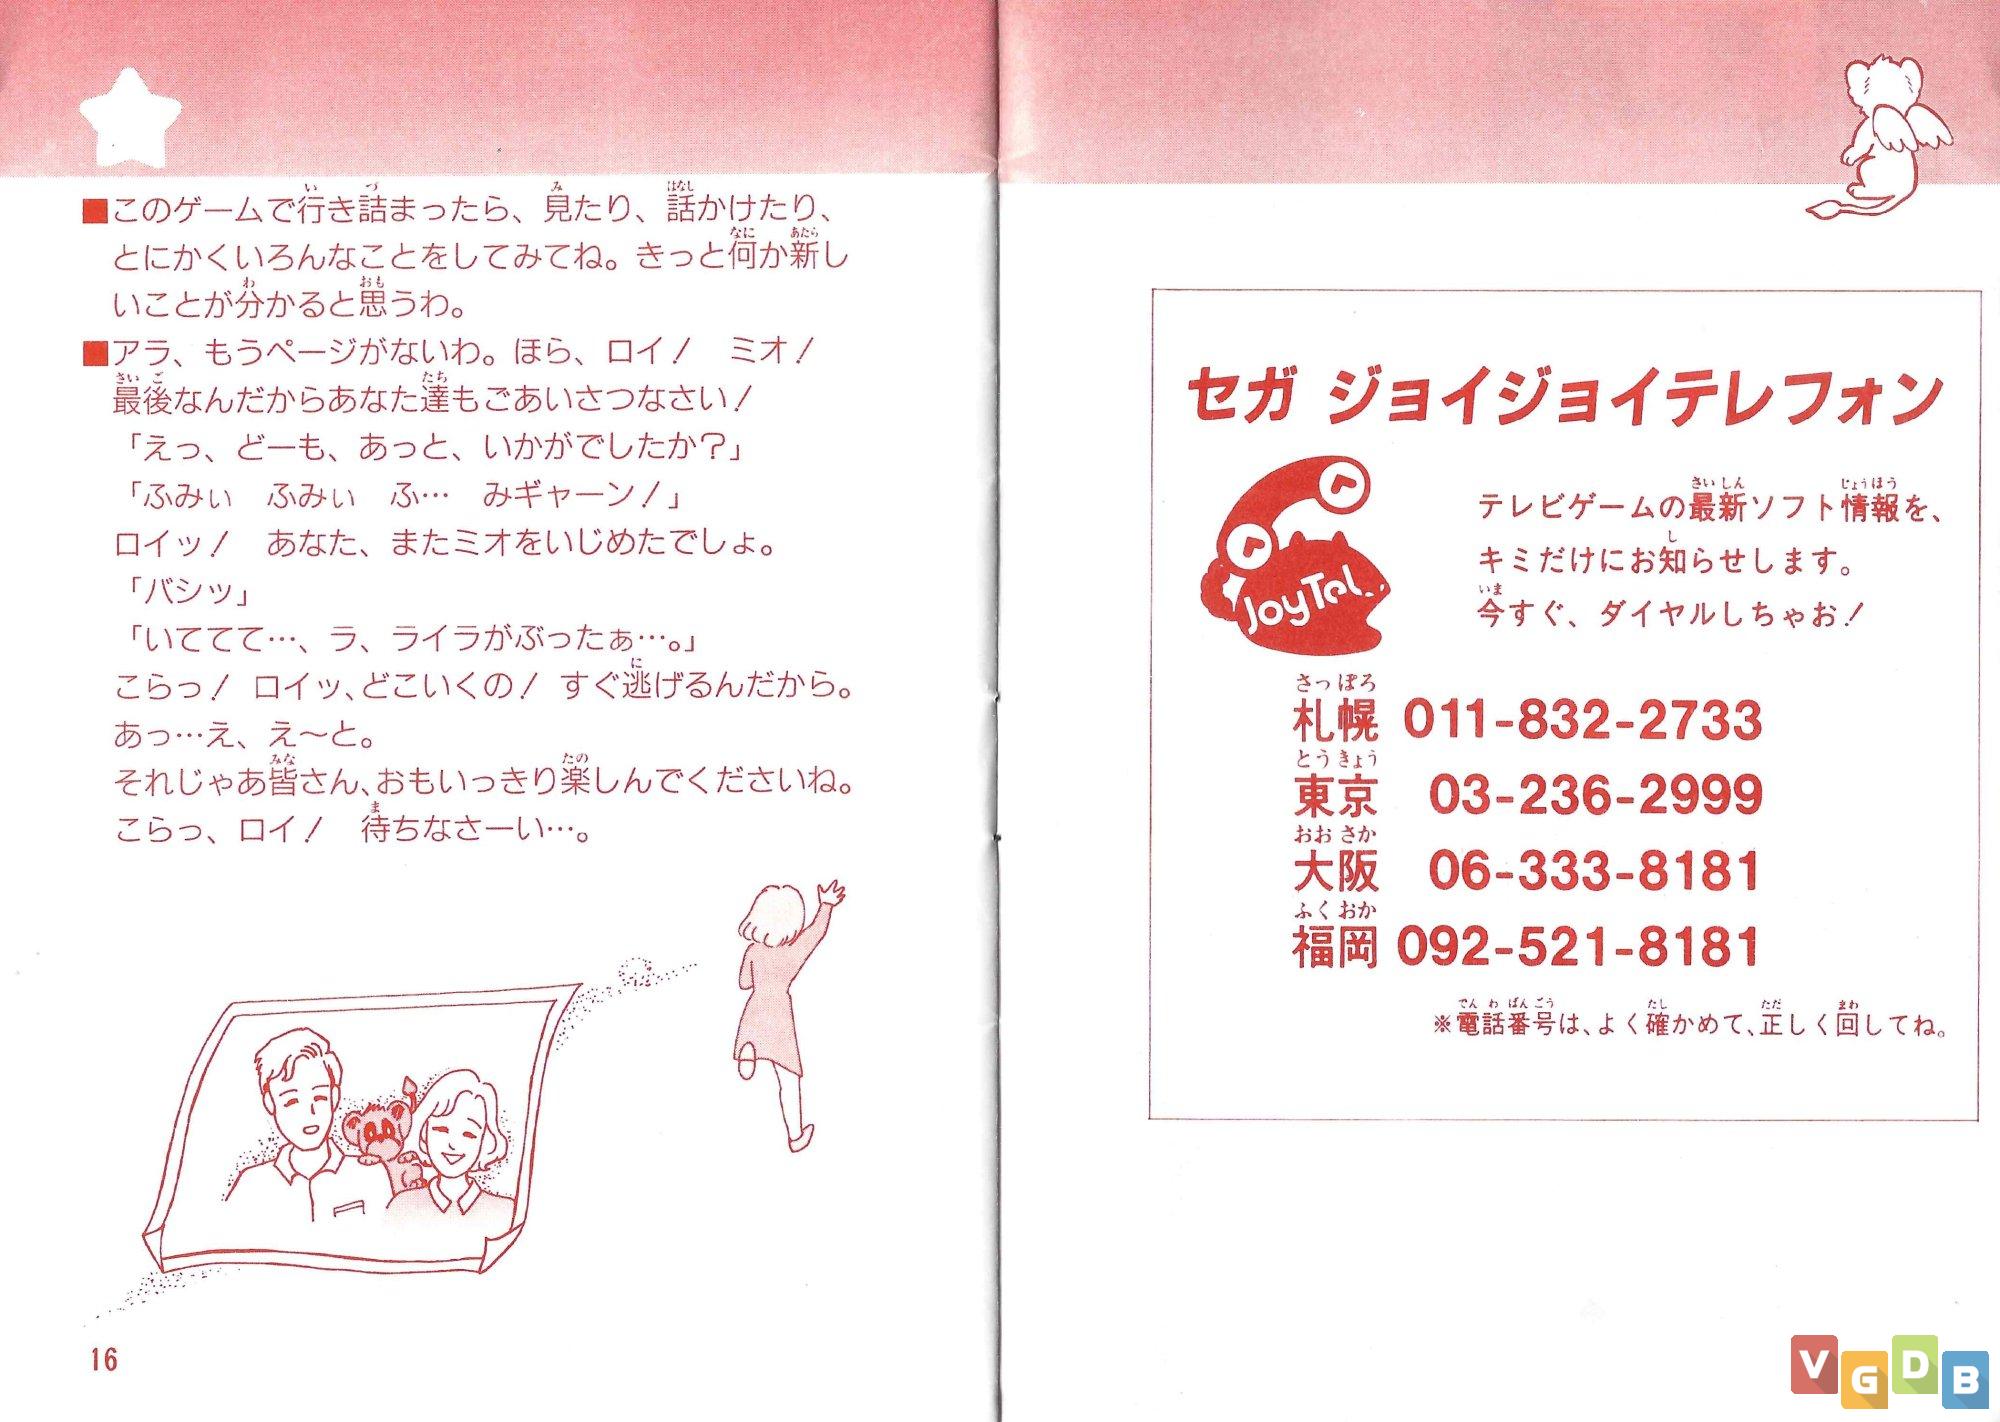 ■このゲームで行き詰まったら、見たり、話かけたり、
とにかくいろんなことをしてみてね。きっと何か新し
いことが分かると思うわ。
■アラ、もうページがないわ。ほら、ロイ! ミオ!
最後なんだからあなた達もごあいさつなさい!
「えっ、どーも、あっと、いかがでしたか?」
「ふみぃ ふみぃ ふ… みギャーン!」
ロイッ! あなた、またミオをいじめたでしょ。
「バシッ」
「いててて…、ラ、ライラがぶったぁ…。」
こらっ! ロイッ、どこいくの! すぐ逃げるんだから。
あっ…え、え〜と。
それじゃあ皆さん、おもいっきり楽しんでくださいね。
こらっ、ロイ! 待ちなさーい…。
16
セガ ジョイジョイテレフォン
JoyTel
テレビゲームの最新ソフト情報を、
キミだけにお知らせします。
今すぐ、ダイヤルしちゃお!
札幌 011-832-2733
東京 03-236-2999
大阪 06-333-8181
福岡 092-521-8181
※電話番号は、よく確かめて、正しく回してね。
VGDB